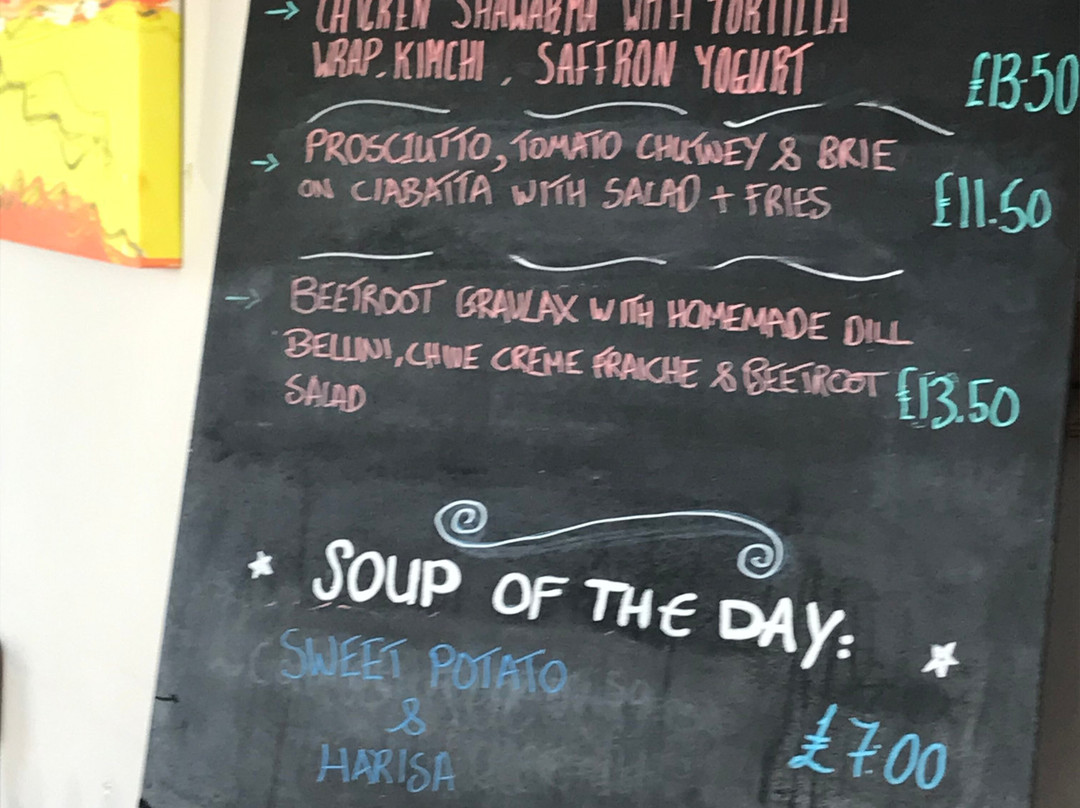 → CHICKEN SHAWARMA WITH TORTILLA
WRAP. KIMCHI, SAFFRON YOGURT £13.50
→ PROSCIUTTO, TOMATO CHUTNEY & BRIE
ON CIABATTA WITH SALAD + FRIES £11.50
→ BEETROOT GRAVLAX WITH HOMEMADE DILL
BELLINI, CHIVE CREME FRAICHE & BEETROOT £13.50
SALAD
SOUP OF THE DAY:
SWEET POTATO
&
HARISA £7.00